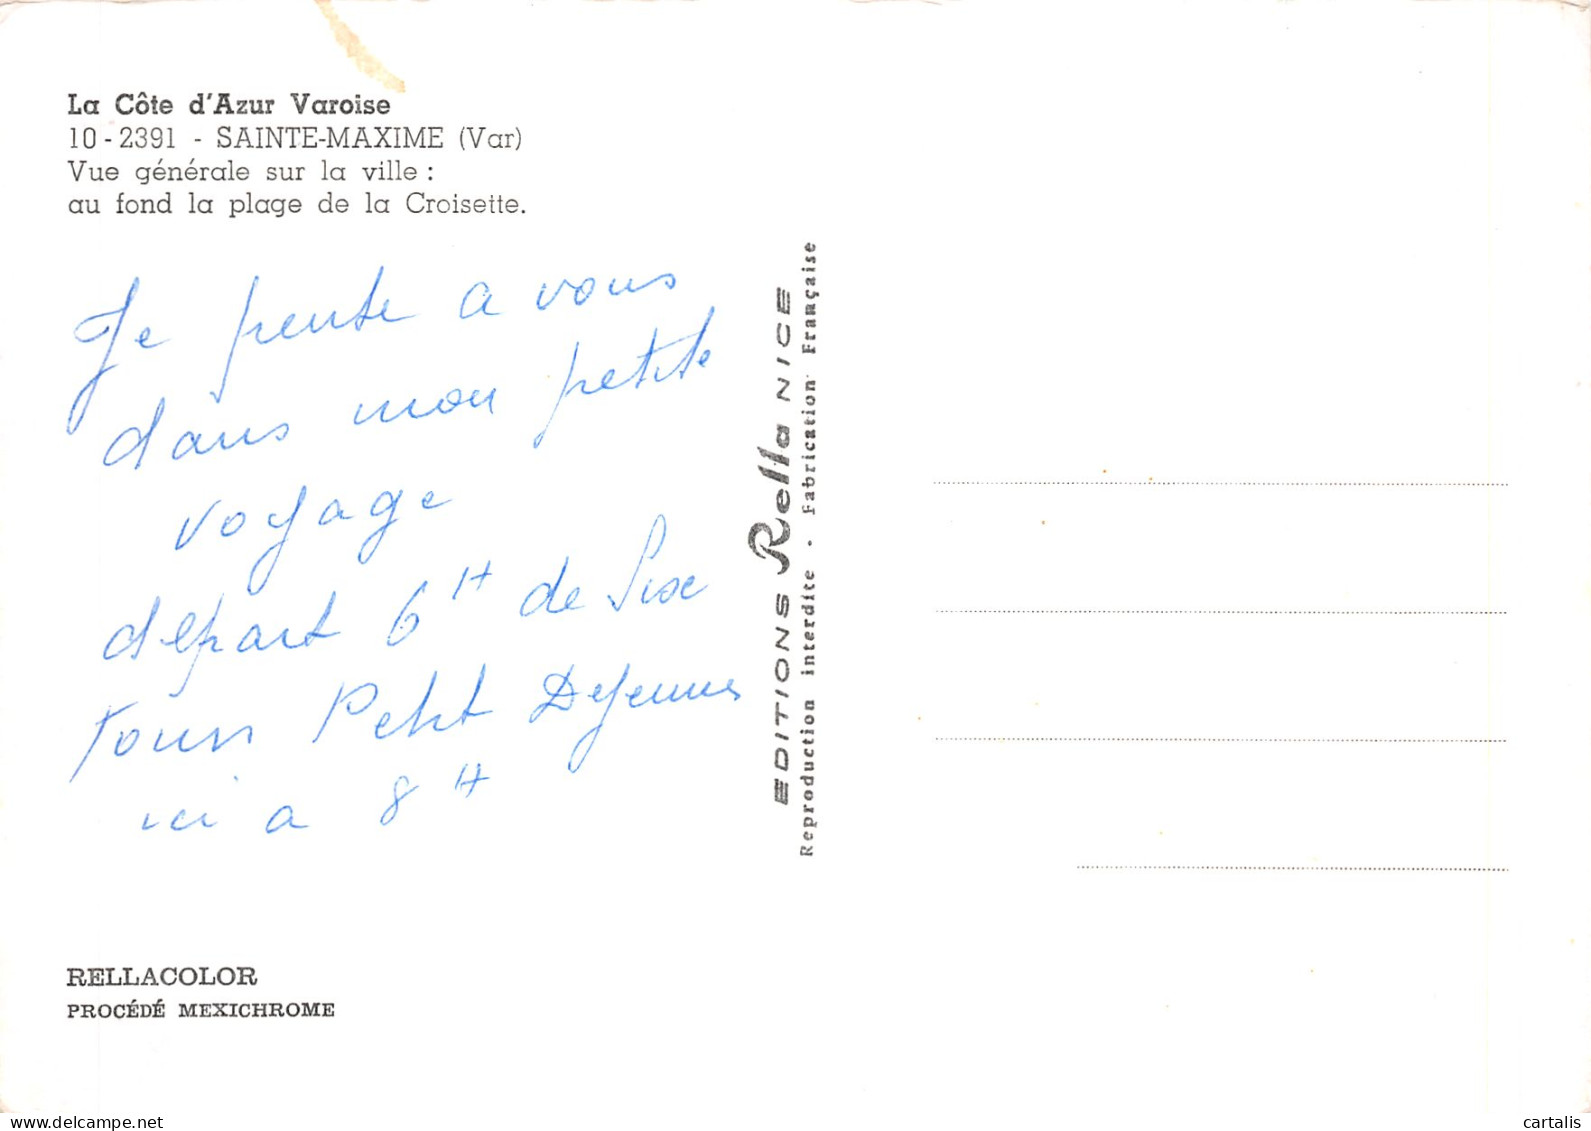 La Côte d'Azur Varoise
10-2391 - SAINTE-MAXIME (Var)
Vue générale sur la ville :
au fond la plage de la Croisette.
Je pense a vous
dans mon petite
voyage
départ 6H de
Tours Petit Dejeuner
ici a 8H
RELLACOLOR
PROCÉDÉ MEXICHROME
EDITIONS Rella NICE
Reproduction interdite - Fabrication Française
www.delcampe.net
cartalis